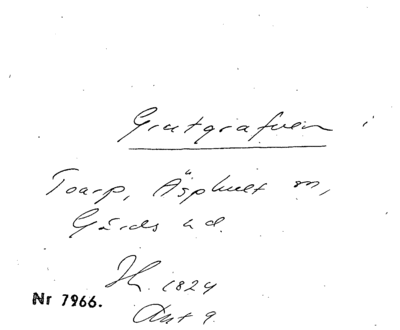 Grutgrafven i
Toarp, Äsphult sn,
Gärds hd.
Jh. 1824
Nr 7966.
Akt 9